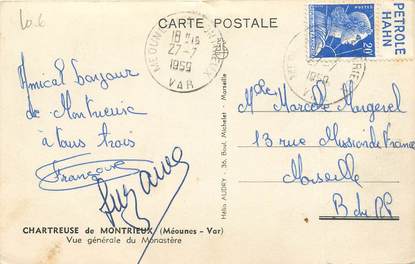 10.6
CARTE POSTALE
PETROLE
HAHN
POSTES
20F
MEOUNES
18H15
27-7
1959
VAR
Amical bonjour
de Montrieux
à tous trois
Françoise
Suzanne
Melle Marcelle
13 rue Mission de France
Marseille
B du R
Hélio AUDRY - 36, Boul. Michelet - Marseille
CHARTREUSE de MONTRIEUX (Méounes - Var)
Vue générale du Monastère